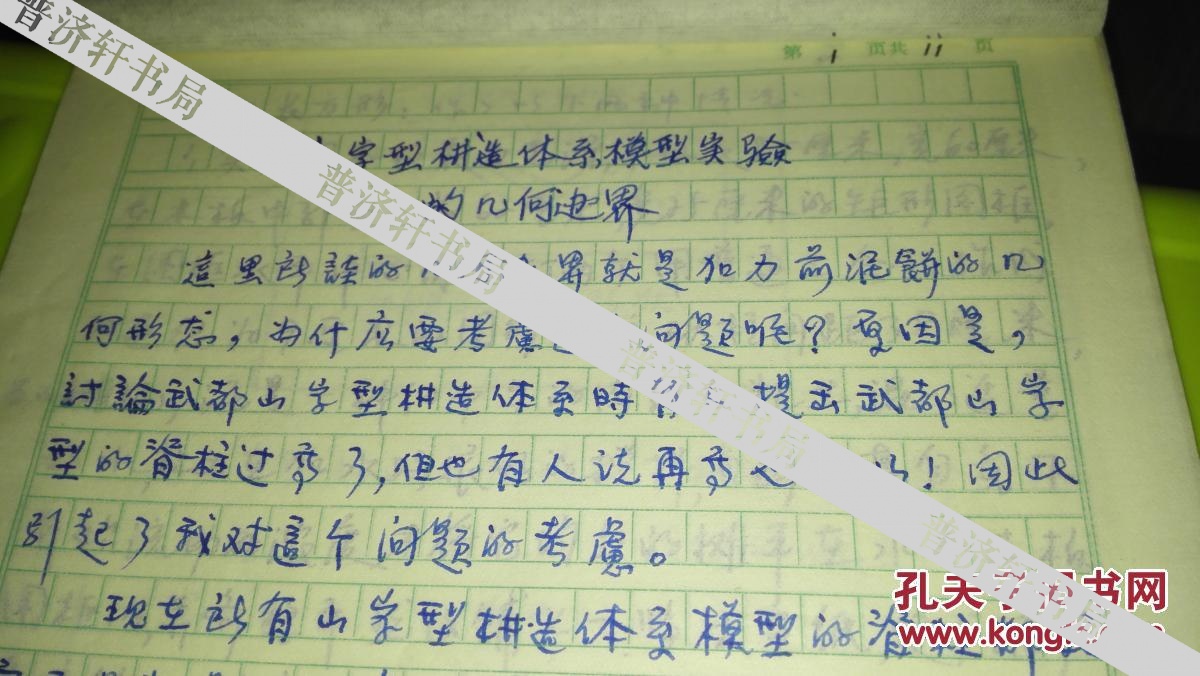 普济轩书局
第 i 页共 ii 页
字型构造体系模型实验
普济轩书局
的几何边界
這里所談的 界就是加力前泥餅的几
何形态,为什么要考慮 问题呢?原因是,
普济轩书局
討論武都山字型构造体系時 提出武都山字
型的脊柱过 了,但也有人说再 ! 因此
引起了我对這个问题的考慮。
普济轩书局
现在所有山字型构造体系模型的脊柱
孔夫子旧书网
www.kongfz.com